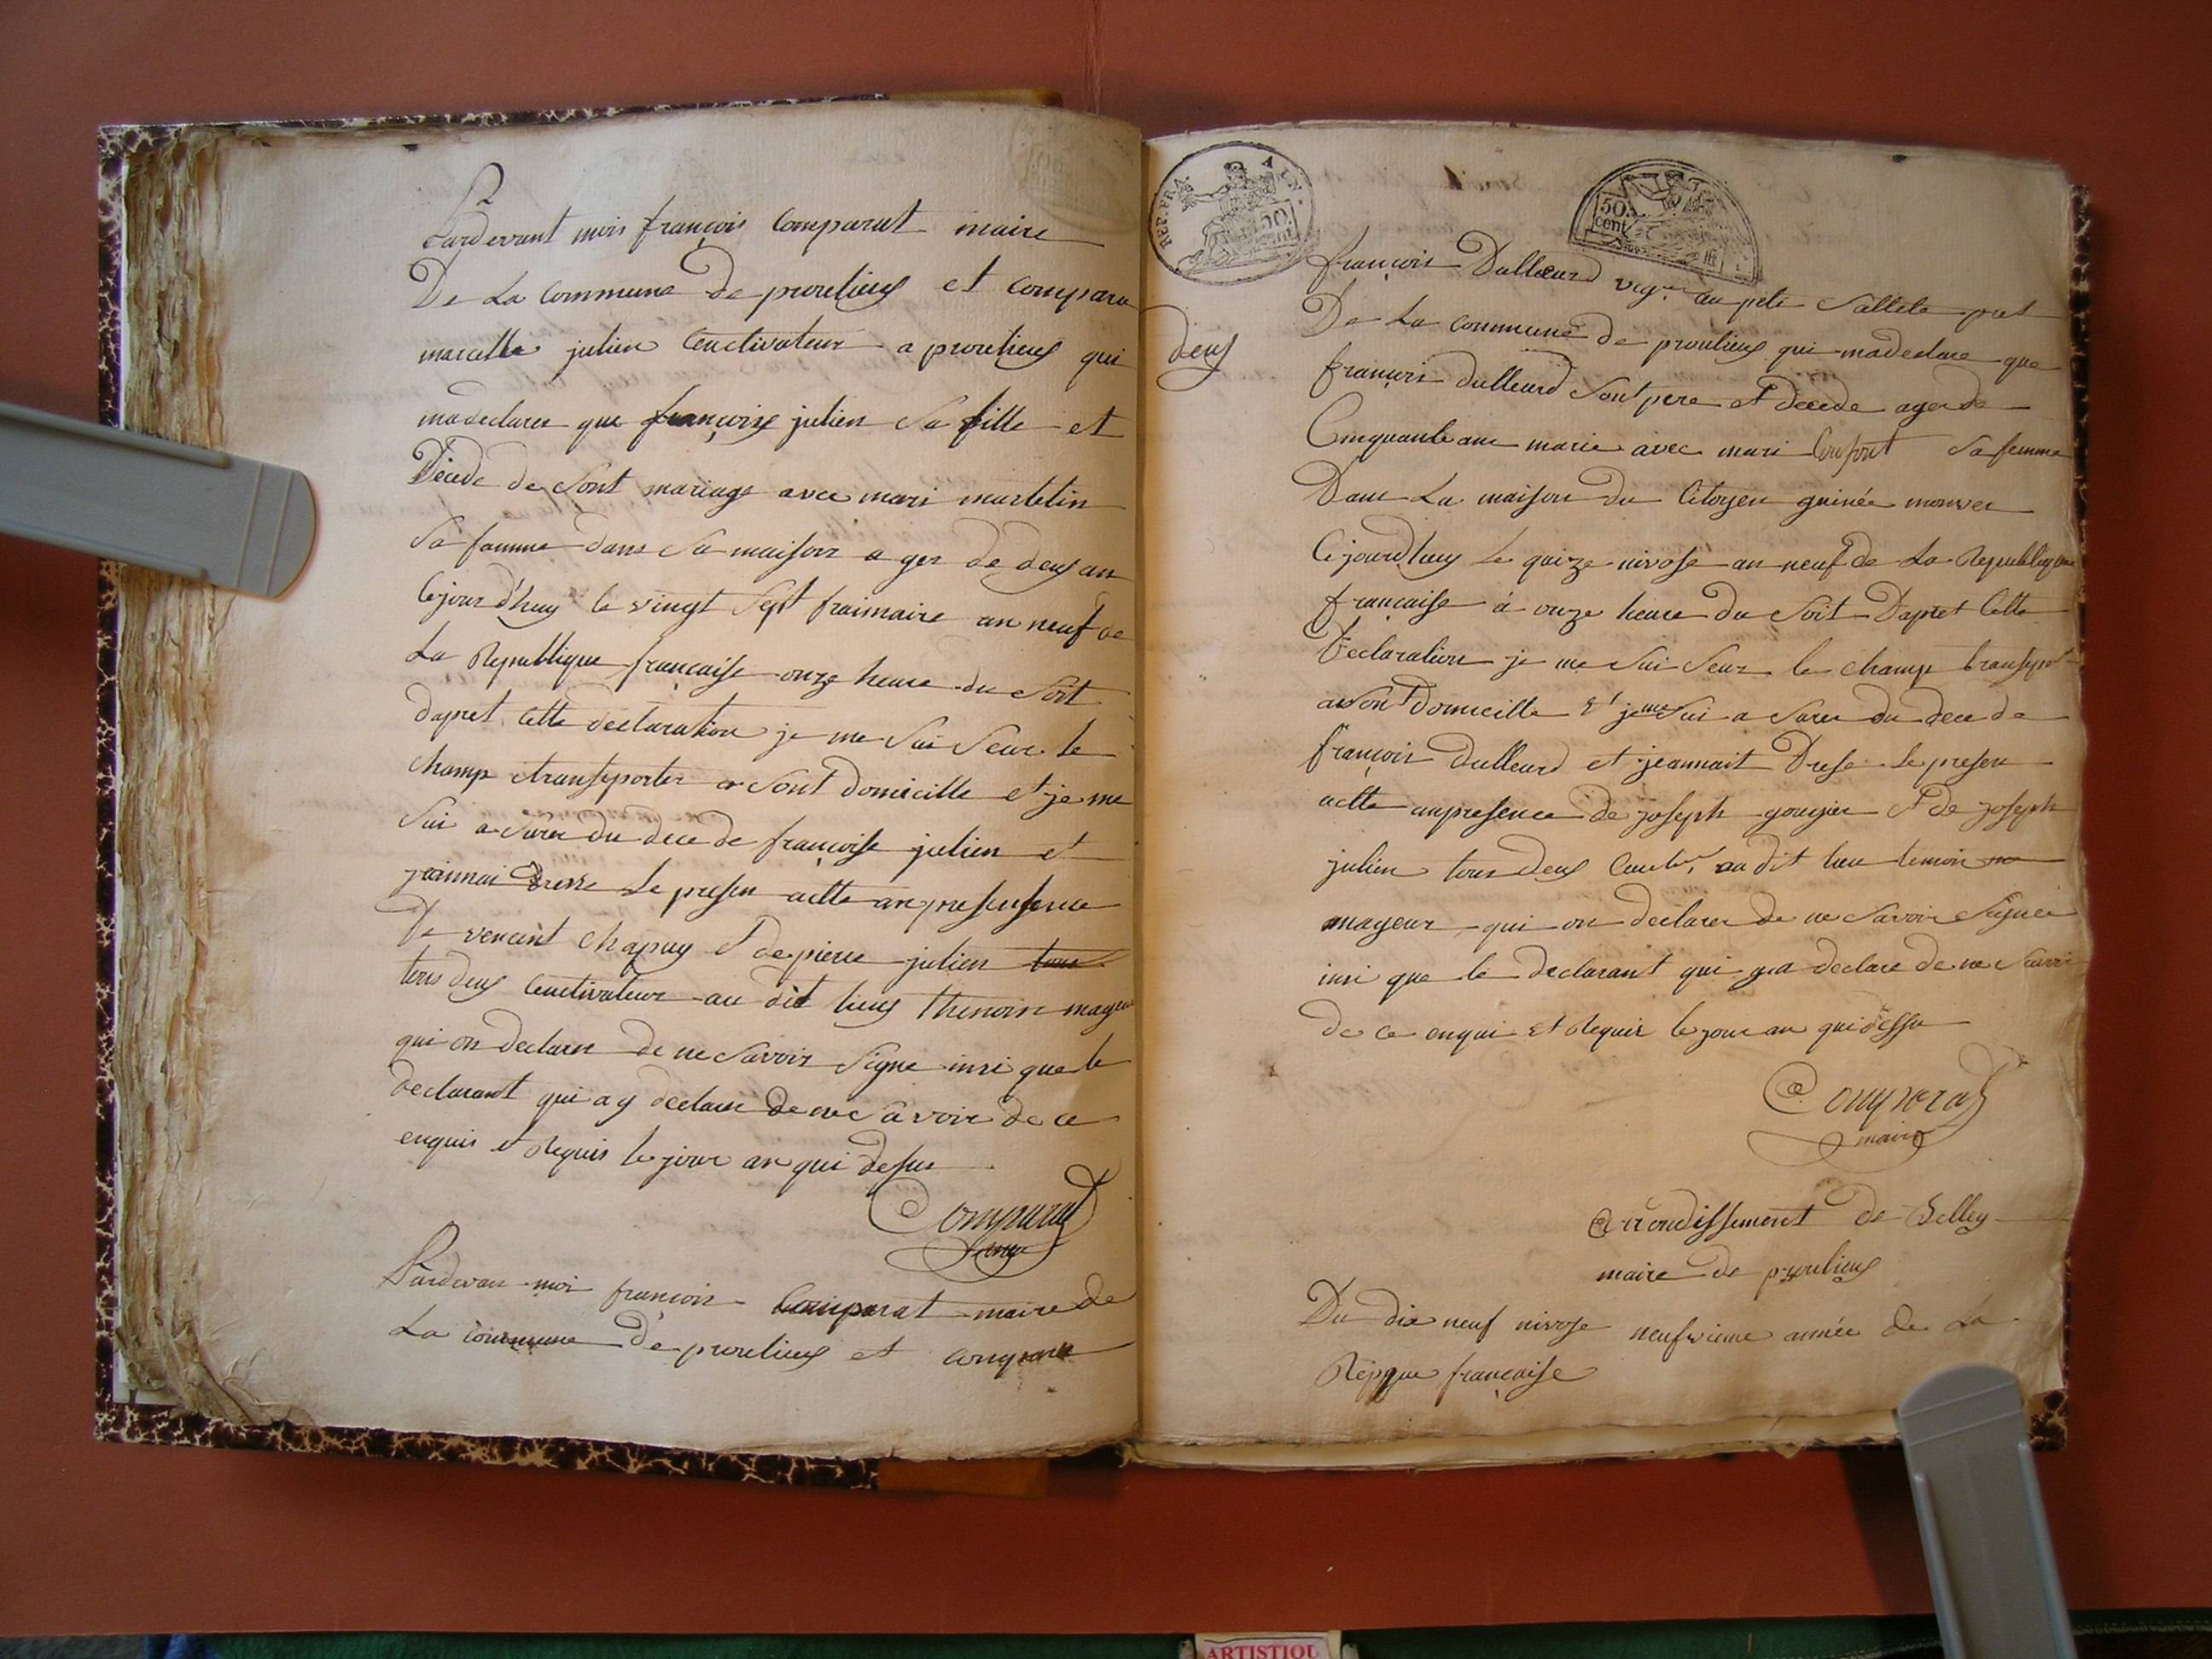 Pardevant mois françois Comparat maire
De La Commune de proulieux et compara
marcelle julien Cenctivateur a proulieux qui
madeclarer que françoise julien Sa fille et
Décede de Sont mariage avec mari martetin
Sa famme dans Sa maison a ger de deux an
Cejour d'huy le vingt Sept fraimaire an neuf de
La Republique française onze heure du Soit
dapret Cette declaration je me Sui Seur le
champ transporter a Sont domicille et je me
Sui a Surer du dece de françoise julien et
jeannai Dresse Le presen actte an presensence
De vencent Chapuy et de pierre julien tous
tous deux Cenctivateur au dit lieux thenoin mageur
qui on declarer de ne Savoir Signe insi que le
declarant qui a y declare de ne Savoir de ce
enquis et Requis le jour an qui desus
Comparat
maire
Pardevan moi francois Comparat maire de
La commune De proulieux et compara
REP. FRA.
50
50
cent
deux
françois Dulleurd vig.on au peti Sallete pret
De La commune de proulieux qui madeclare que
françois dulleurd Sont pere et decede age de
Cinquante ans marie avec mari Confort Sa femme
Dans La maison du Citoyen guinée
Cejourdhuy le quize nivose an neuf de La Republique
française à onze heure du Soit Dapret Cette
Declaration je me Sui Seur le champ transpor
a Sont Domicille Et je me Sui a Surer du dece de
françois Dulleurd et jeannait Drese le presen
actte anpresence de joseph goujon et de joseph
julien tous deux Centr. au dit lieu temoin
mageur qui on declarer de ne Savoir Signer
insi que le declarant qui y a declare de ne Savoir
de ce enqui Et Requis le jour an qui dessu
Comparat
maire
Arrondissement de Belley
maire de proulieux
Du dix neuf nivose neufvieme année de La
Repque française
ARTISTIQU